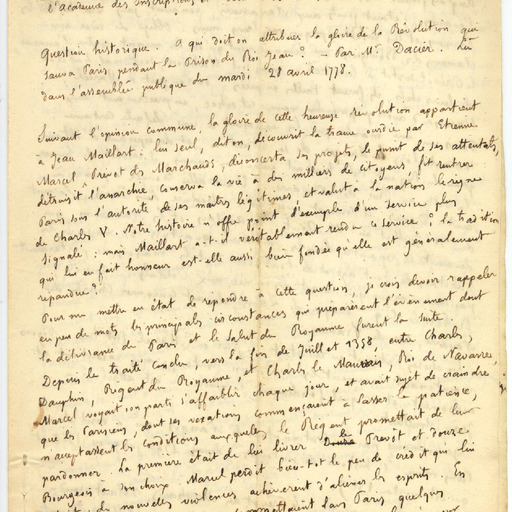 l'Académie des Inscriptions
Question historique. A qui doit on attribuer la gloire de la Révolution qui
sauva Paris, pendant la Prison du Roi Jean? Par Mr. Dacier. Lu
dans l'assemblée publique du mardi 28 avril 1778.
Suivant l'opinion commune, la gloire de cette heureuse révolution appartient
à Jean Maillart: lui seul, dit on, découvrit la trame ourdie par Etienne
Marcel Prevot des Marchands, déconcerta ses projets, le punit de ses attentats,
détruisit l'anarchie, conserva la vie à des milliers de citoyens, fit rentrer
Paris sous l'autorité de ses maitres légitimes et valut à la nation le règne
de Charles V. Notre histoire n'offre point d'exemple d'un service plus
signalé: mais Maillart a-t-il véritablement rendu ce service? la tradition
qui lui en fait honneur est-elle aussi bien fondée qu'elle est généralement
répandue?
Pour me mettre en état de repondre à cette question, je crois devoir rappeler
en peu de mots les principales circonstances qui préparèrent l'évènement dont
la délivrance de Paris et le salut du Royaume furent la suite.
Depuis le traité conclu, vers la fin de Juillet 1358, entre Charles,
Dauphin, Régent du Royaume, et Charles le Mauvais, Roi de Navarre,
Marcel voyait son parti s'affaiblir chaque jour, et avait sujet de craindre
que les Parisiens, dont ses vexations commençaient à lasser la patience,
n'acceptassent les conditions auxquelles le Régent promettait de leur
pardonner. La première était de lui livrer le Prevôt et douze
Bourgeois à son choix. Marcel perdit bien-tot le peu de crédit qui lui
de nouvelles violences acheverent d'aliéner les esprits. En
commettaient dans Paris quelques